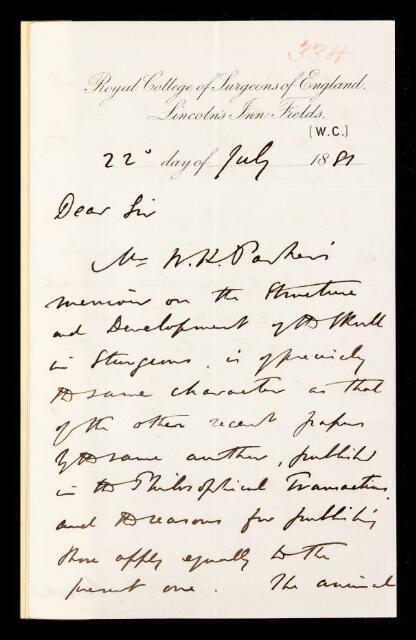 334
Royal College of Surgeons of England.
Lincoln's Inn Fields.
(W.C.)
22ᵈ day of July 1881
Dear Sir
Mr W. K. Parker's
memoir on the Structure
and Development of the Skull
in Sturgeons, is of precisely
the same character as that
of the other recent papers
by the same author, published
in the Philosophical Transactions,
and the reasons for publishing
those apply equally to the
present one. The animal